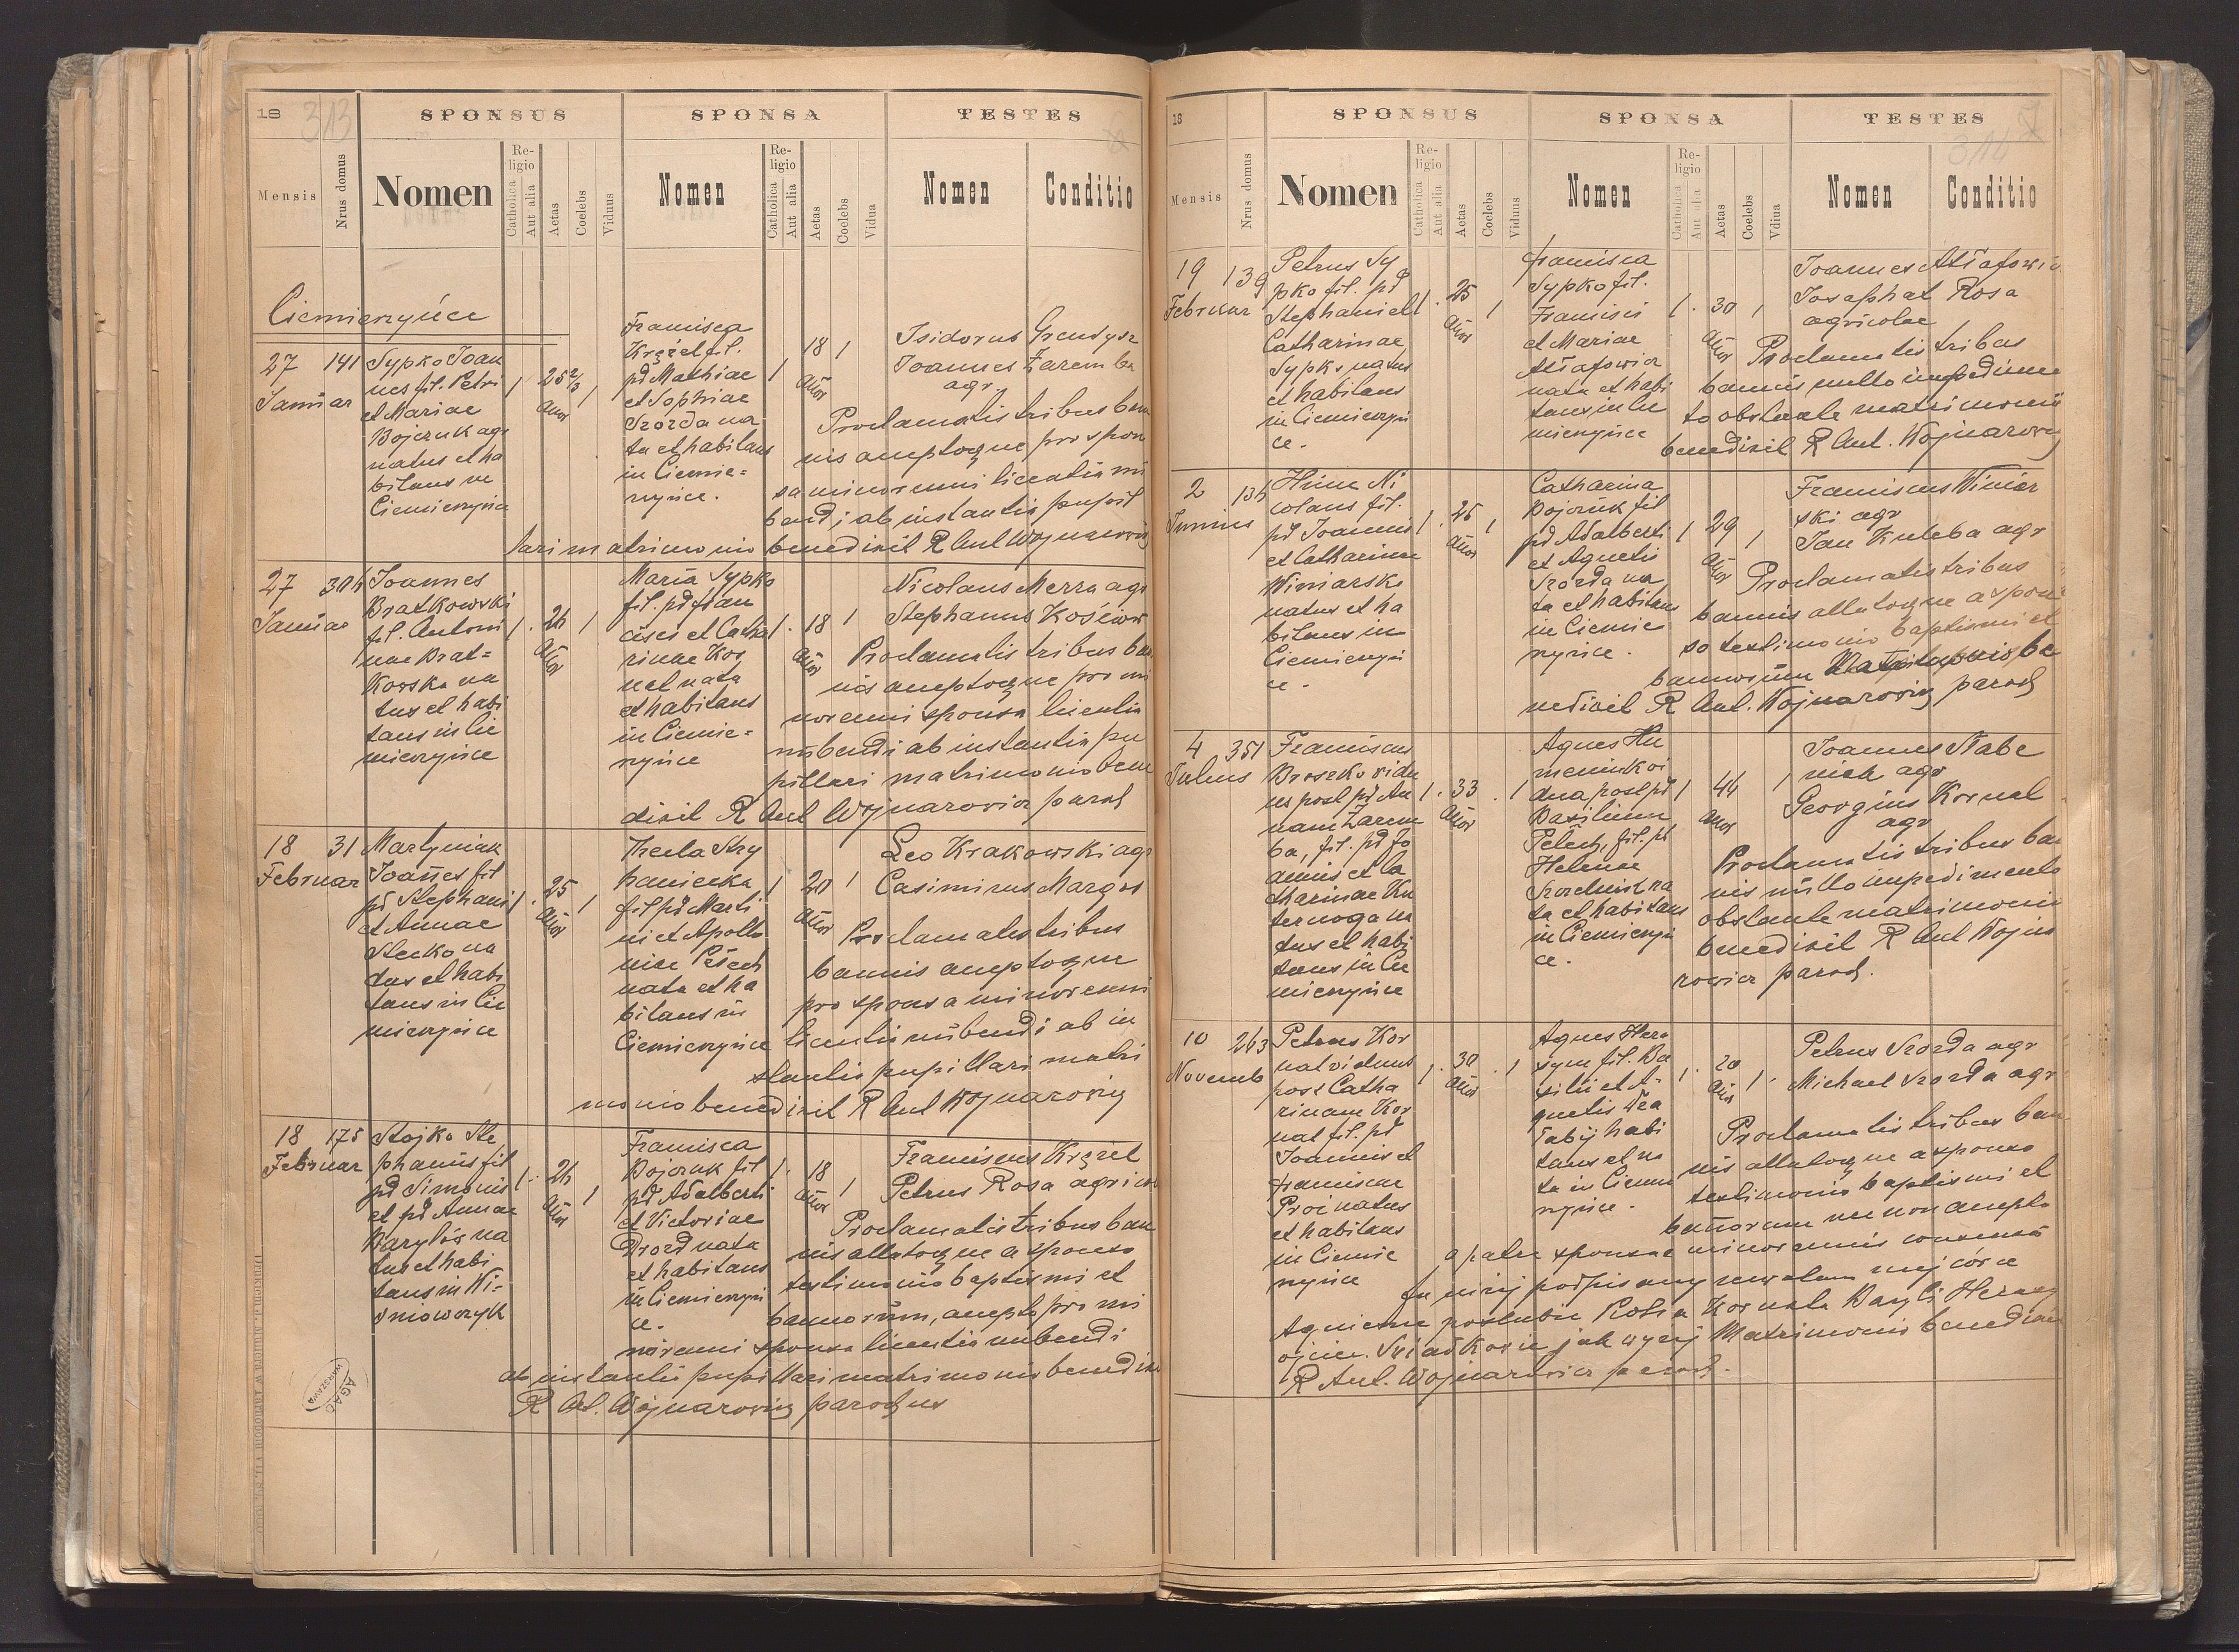 18 313
SPONSUS SPONSA TESTES
Mensis Nrus domus Nomen Religio Catholica Aut alia Aetas Coelebs Viduus Nomen Religio Catholica Aut alia Aetas Coelebs Vidua Nomen Conditio
Ciemierzyńce
27 141
Januar
Sypko Joan
nes fil. Petri
et Mariae
Bojczuk agr
natus et ha
bitans in
Ciemierzyńce
1 25 2/3 1
Francisca
Krężel fil.
pd Mathiae
et Sophiae
Srorda na
ta et habitans
in Ciemie=
rzyńce.
1 18 1
Isidorus
Joannes Zaremba
agr
Proclamatis tribus ban
nis aceptoque pro spon
sa minorenni licentia nu
bendi ab instantia pupil
lari matrimonio benedixit R Ant Wojnarowicz
27
Januar
Joannes
Bratkowski
fil. Antoni
nae Brat=
kowska na
tus et habi
tans in Cie
mierzyńce
1. 24 1
Maria Sypko
fil. pd Fran
cisci et Catha
rinae Kor
nel nata
et habitans
in Ciemie=
rzyńce
1. 18 1
Nicolaus Merra agr
Stephanus
Proclamatis tribus ban
nis aceptoque pro mi
norenni sponsa licentia
nubendi ab instantia pu
pillari matrimonio bene
dixit R Ant Wojnarowicz paroch
18 31
Februar
Martyniak
Joannes fil
pd Stephani
et Annae
Stecko na
tus et habi
tans in Cie
mierzyńce
1. 25 1
Thecla Stry
haniecka
fil pd Marti
ni et Apollo
niae Pełech
nata et ha
bitans in
Ciemierzyńce
1 20 1
Leo Krakowski agr
Casimirus Margos
Proclamatis tribus
bannis aceptoque
pro sponsa minorenni
licentia nubendi ab in
stantia pupillari matri
monio benedixit R Ant Wojnarowicz
18 175
Februar
Stojko Ste
phanus fil
pd Simonis
et pd Annae
Baryłów na
tus et habi
tans in Wi=
śniowczyk
1. 24 1
Francisca
Bojczuk fil
pd Adalberti
et Victoriae
Drozd nata
et habitans
in Ciemierzyń
ce.
1. 18 1
Franciscus Krężel
Petrus Rosa agricolae
Proclamatis tribus ban
nis allatoque a sponso
testimonio baptismi et
bannorum, acepta pro mi
norenni sponsa licentia nubendi
ab instantia pupillari matrimonio benedixit
R Ant. Wojnarowicz parochus
AGAD
WARSZAWA
18 314
SPONSUS SPONSA TESTES
Mensis Nrus domus Nomen Religio Catholica Aut alia Aetas Coelebs Viduus Nomen Religio Catholica Aut alia Aetas Coelebs Vdiua Nomen Conditio
19 139
Februar
Petrus Sy
pko fil. pd
Stephani et
Catharinae
Sypko natus
et habitans
in Ciemierzyń
ce.
1. 25 1
Francisca
Sypko fil.
Francisci
et Mariae
nata et habi
tans in Cie
mierzyńce
1. 30 1
Joannes
Josaphat Rosa
agricolae
Proclamatis tribus
bannis nullo impedimen
to obstante matrimonio
benedixit R Ant. Wojnarowicz
2
Junius
Hume Ni
colaus fil.
pd Joannis
et Catharinae
Winiarska
natus et ha
bitans in
Ciemierzyń
ce.
1. 25 1
Catharina
Bojczuk fil
pd Adalberti
et Agnetis
Srorda na
ta et habitans
in Ciemie
rzyńce.
1 29 1
Franciscus Winiar
ski agr
Jan Kuleba agr
Proclamatis tribus
bannis allatoque a spon
so testimonio baptismi et
bannorum Matrimonio be
nedixit R Ant. Wojnarowicz paroch
4 351
Julius
Franciscus
Broszko vidu
us post pd An
nam Zarem
ba, fil. pd Jo
annis et Ca
tharinae Ku
ternoga na
tus et habi
tans in Cie
mierzyńce
1. 33 . 1
Agnes Hu
meniuk vi
dua post pd
Basilium
Pełech, fil. pd
Helenae
na
ta et habitans
in Ciemierzyń
ce.
1 44 1
Joannes
agr
Georgius Kornal
agr
Proclamatis tribus ban
nis nullo impedimento
obstante matrimonio
benedixit R Ant Wojna
rowicz paroch.
10 263
Novemb
Petrus Kor
nal viduus
post Catha
rinam Kor
nal fil. pd
Joannis et
Franciscae
Proc natus
et habitans
in Ciemie
rzyńce
1. 30 . 1
Agnes Hera
sym fil. Ba
silii et A=
gnetis
habi
tans et na
ta in Ciemie
rzyńce.
1. 20 1.
Petrus Srorda agr
Michael Srorda agr
Proclamatis tribus ban
nis allatoque a sponso
testimonio baptismi et
bannorum nec non acepto
a patre sponsae minorennis consensu
Ja niżej podpisany zezwalam mej córce
Agnieszce poślubić Piotra Kornala Bazyli Herasym
ojciec. Świadkowie jak wyżej Matrimonio benedixit
R Ant. Wojnarowicz paroch.